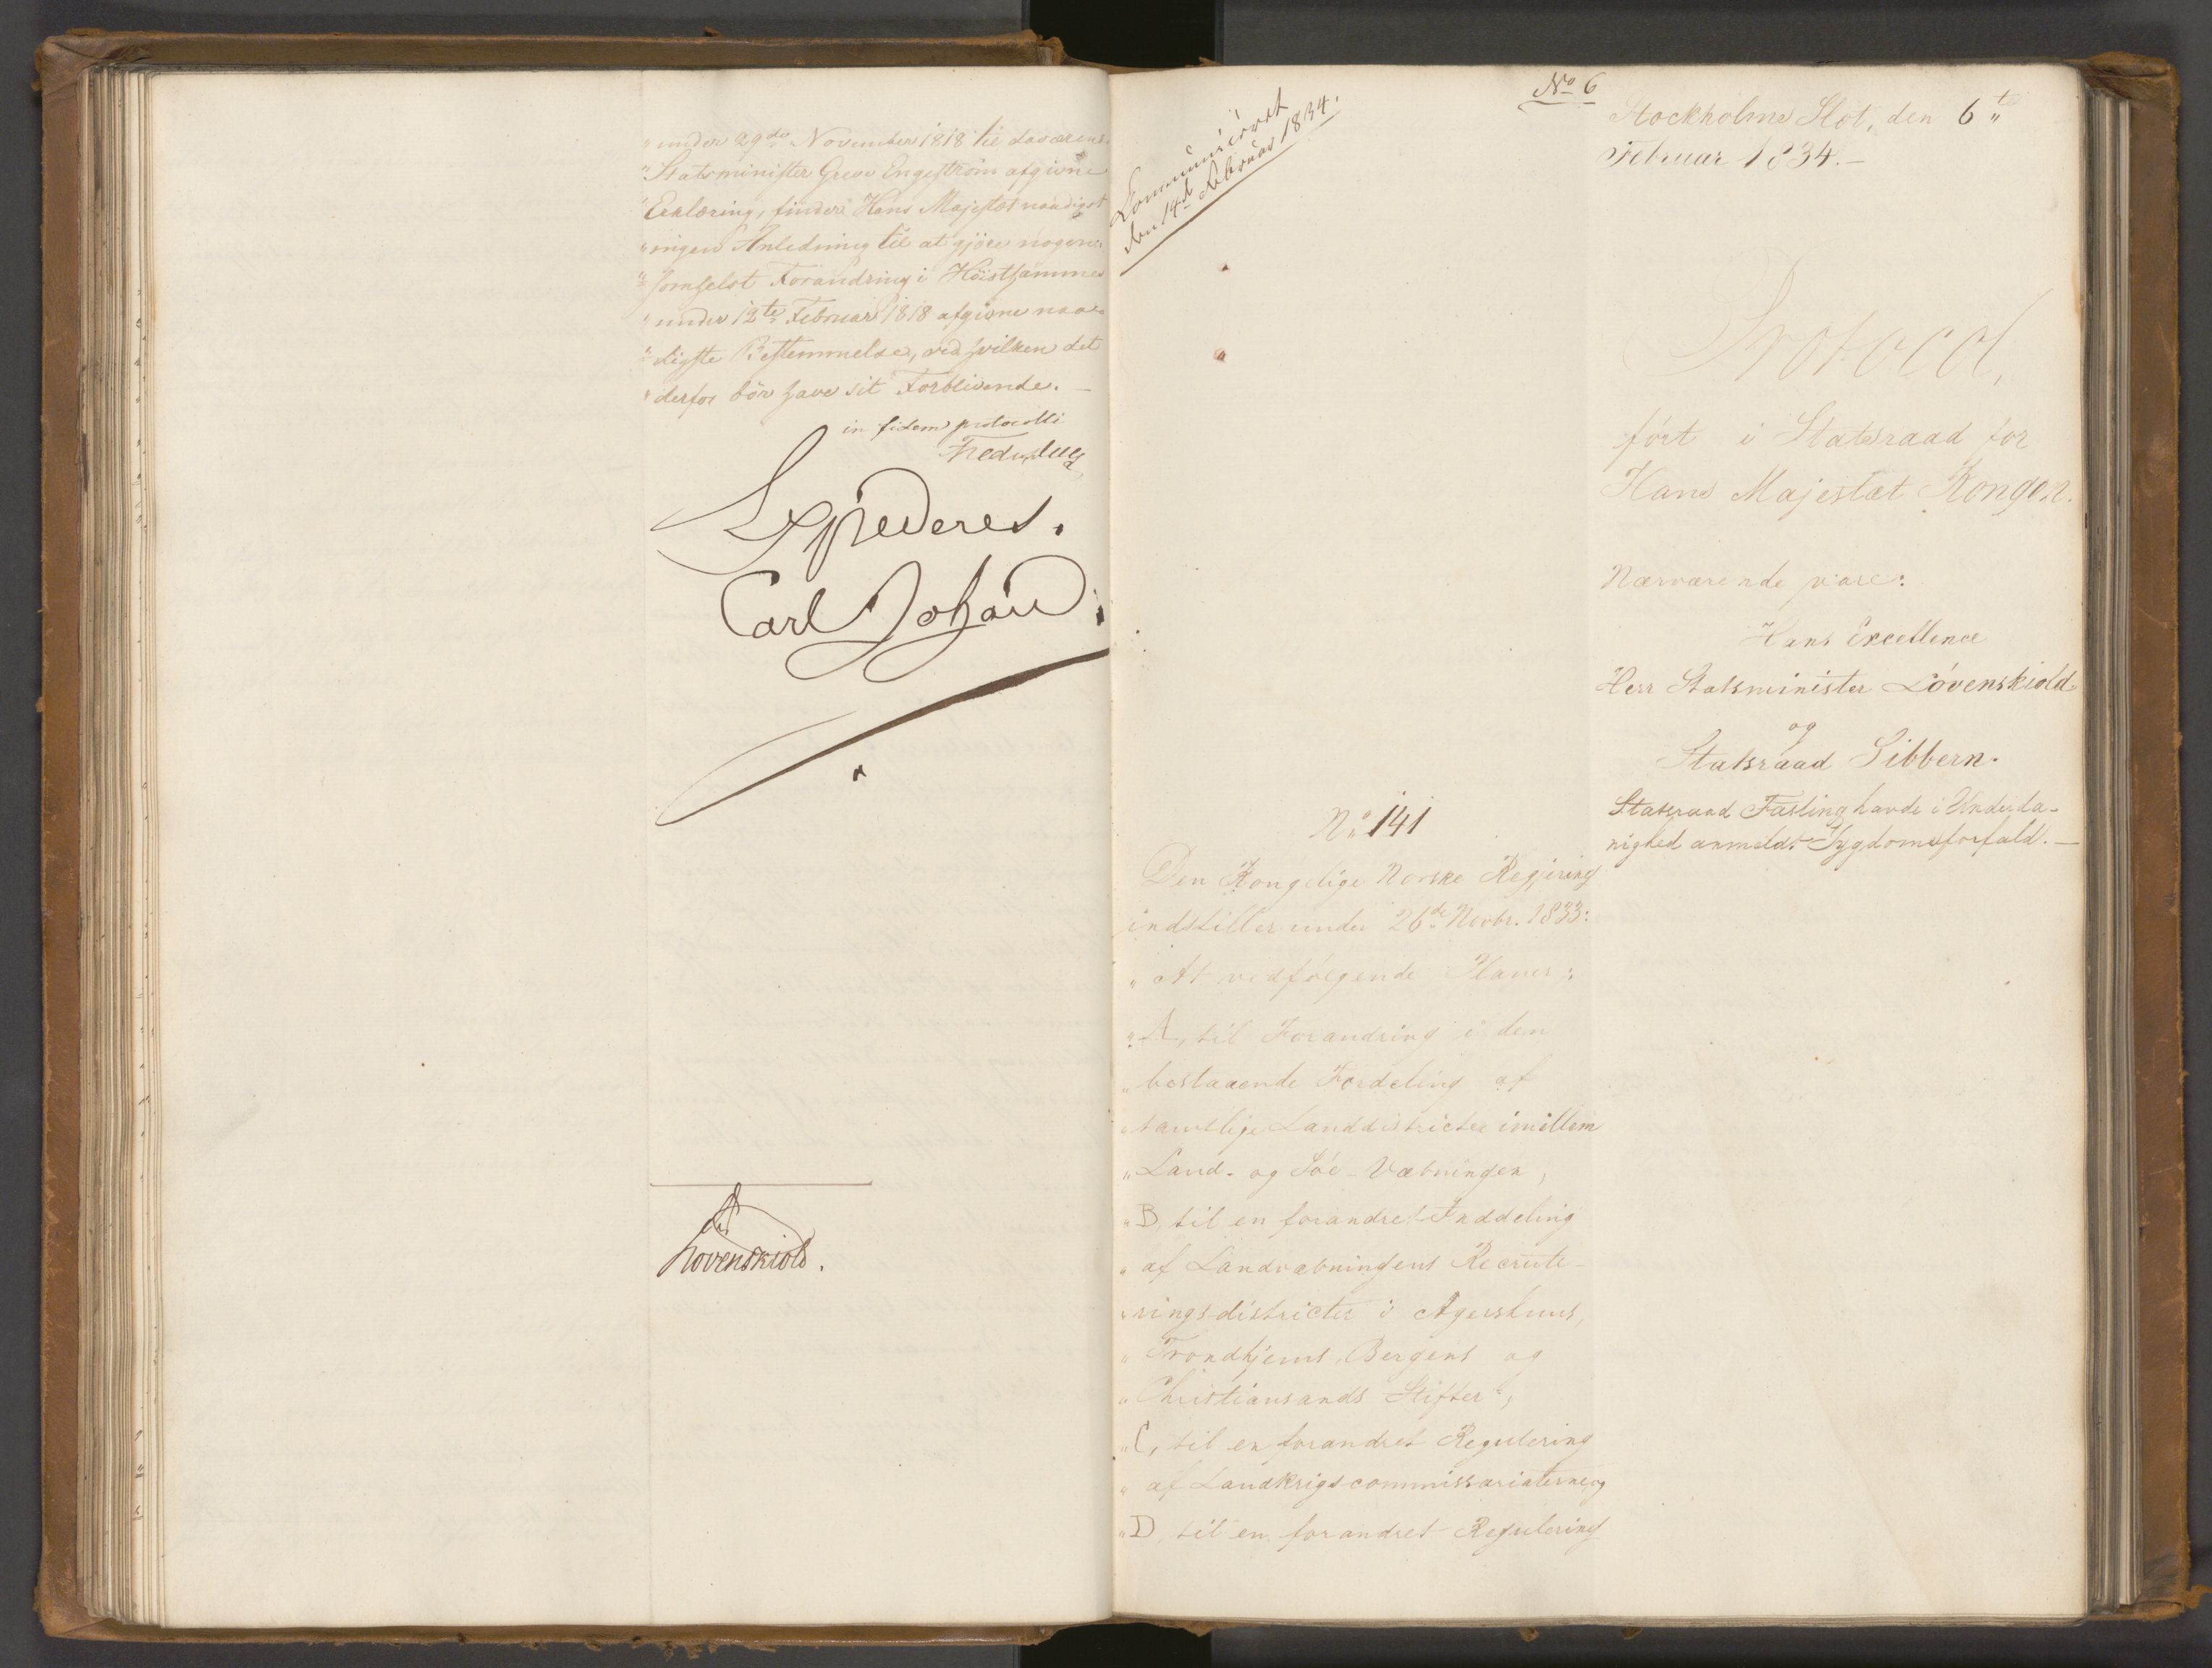 "under 29de November 1818 til daværend.
"Statsminister Greve Engeström afgivne
"Erklæring, finder Hans Majestæt naadigst
"ingen Anledning til at gjöre nogen
"somhelst Forandring i Höistsammes
"under 12te Februar 1818 afgivne naa=
"digste Bestemmelse, ved hvilken det
"derfor bör have sit Forblivende. —
in fidem protocolli
Expederes.
Carl Johan
Løvenskiold.
Communiceret
den 14de Februar 1834.
No 6
Stockholms Slot, den 6te
Februar 1834. —
Protocol,
fört i Statsraad for
Hans Majestæt Kongen.
Nærværende vare:
Hans Excellence
Herr Statsminister Lövenskiold
og
Statsraad Sibbern.
Statsraad Fasting havde i Underda-
nighed anmeldt Sygdomsforfald. —
No 141
Den Kongelige Norske Regjering
indstiller under 26de Novbr. 1833:
"At vedfölgende Planer:
"A, til Forandring i den
"bestaaende Fordeling af
"samtlige Landdistricter imillem
"Land- og Söe-Væbningen,
"B, til en forandret Inddeling
"af Landvæbningens Recrute-
"ringsdistricter i Agershuus,
"Trondhjems, Bergens og
"Christiansands Stifter,
"C, til en forandret Regulering
"af Landkrigscommissariaterne og
"D, til en forandret Regulering